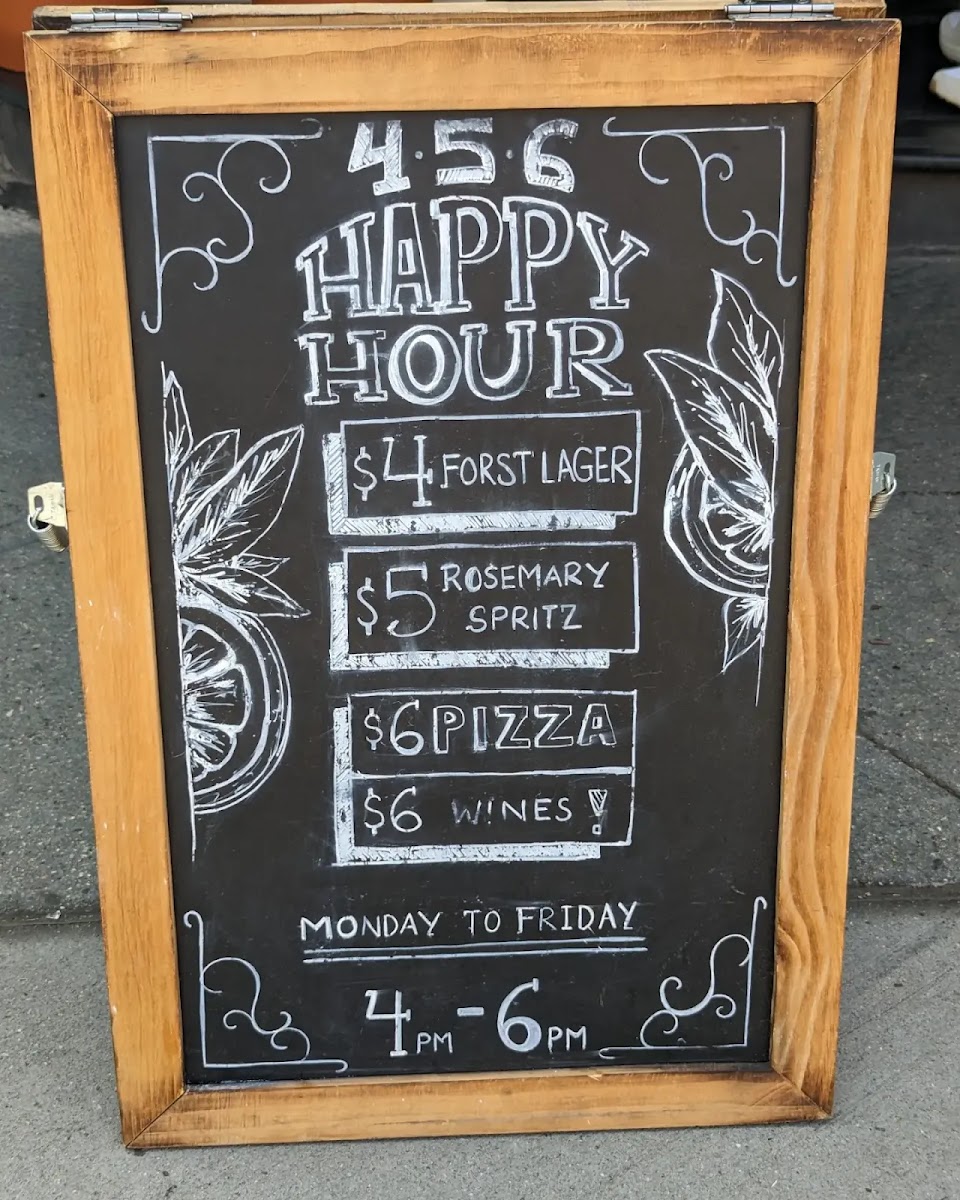 4·5·6
HAPPY
HOUR
$4 FORST LAGER
$5 ROSEMARY
SPRITZ
$6 PIZZA
$6 WINES!
MONDAY TO FRIDAY
4PM - 6PM